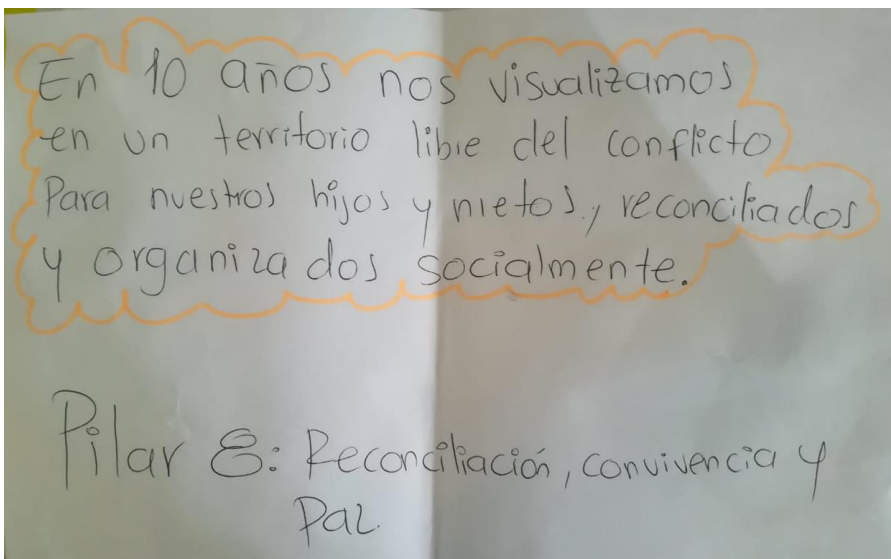 En 10 años nos visualizamos
en un territorio libre del conflicto
Para nuestros hijos y nietos, reconciliados
y organizados socialmente.
Pilar 8: Reconciliación, convivencia y
Paz.